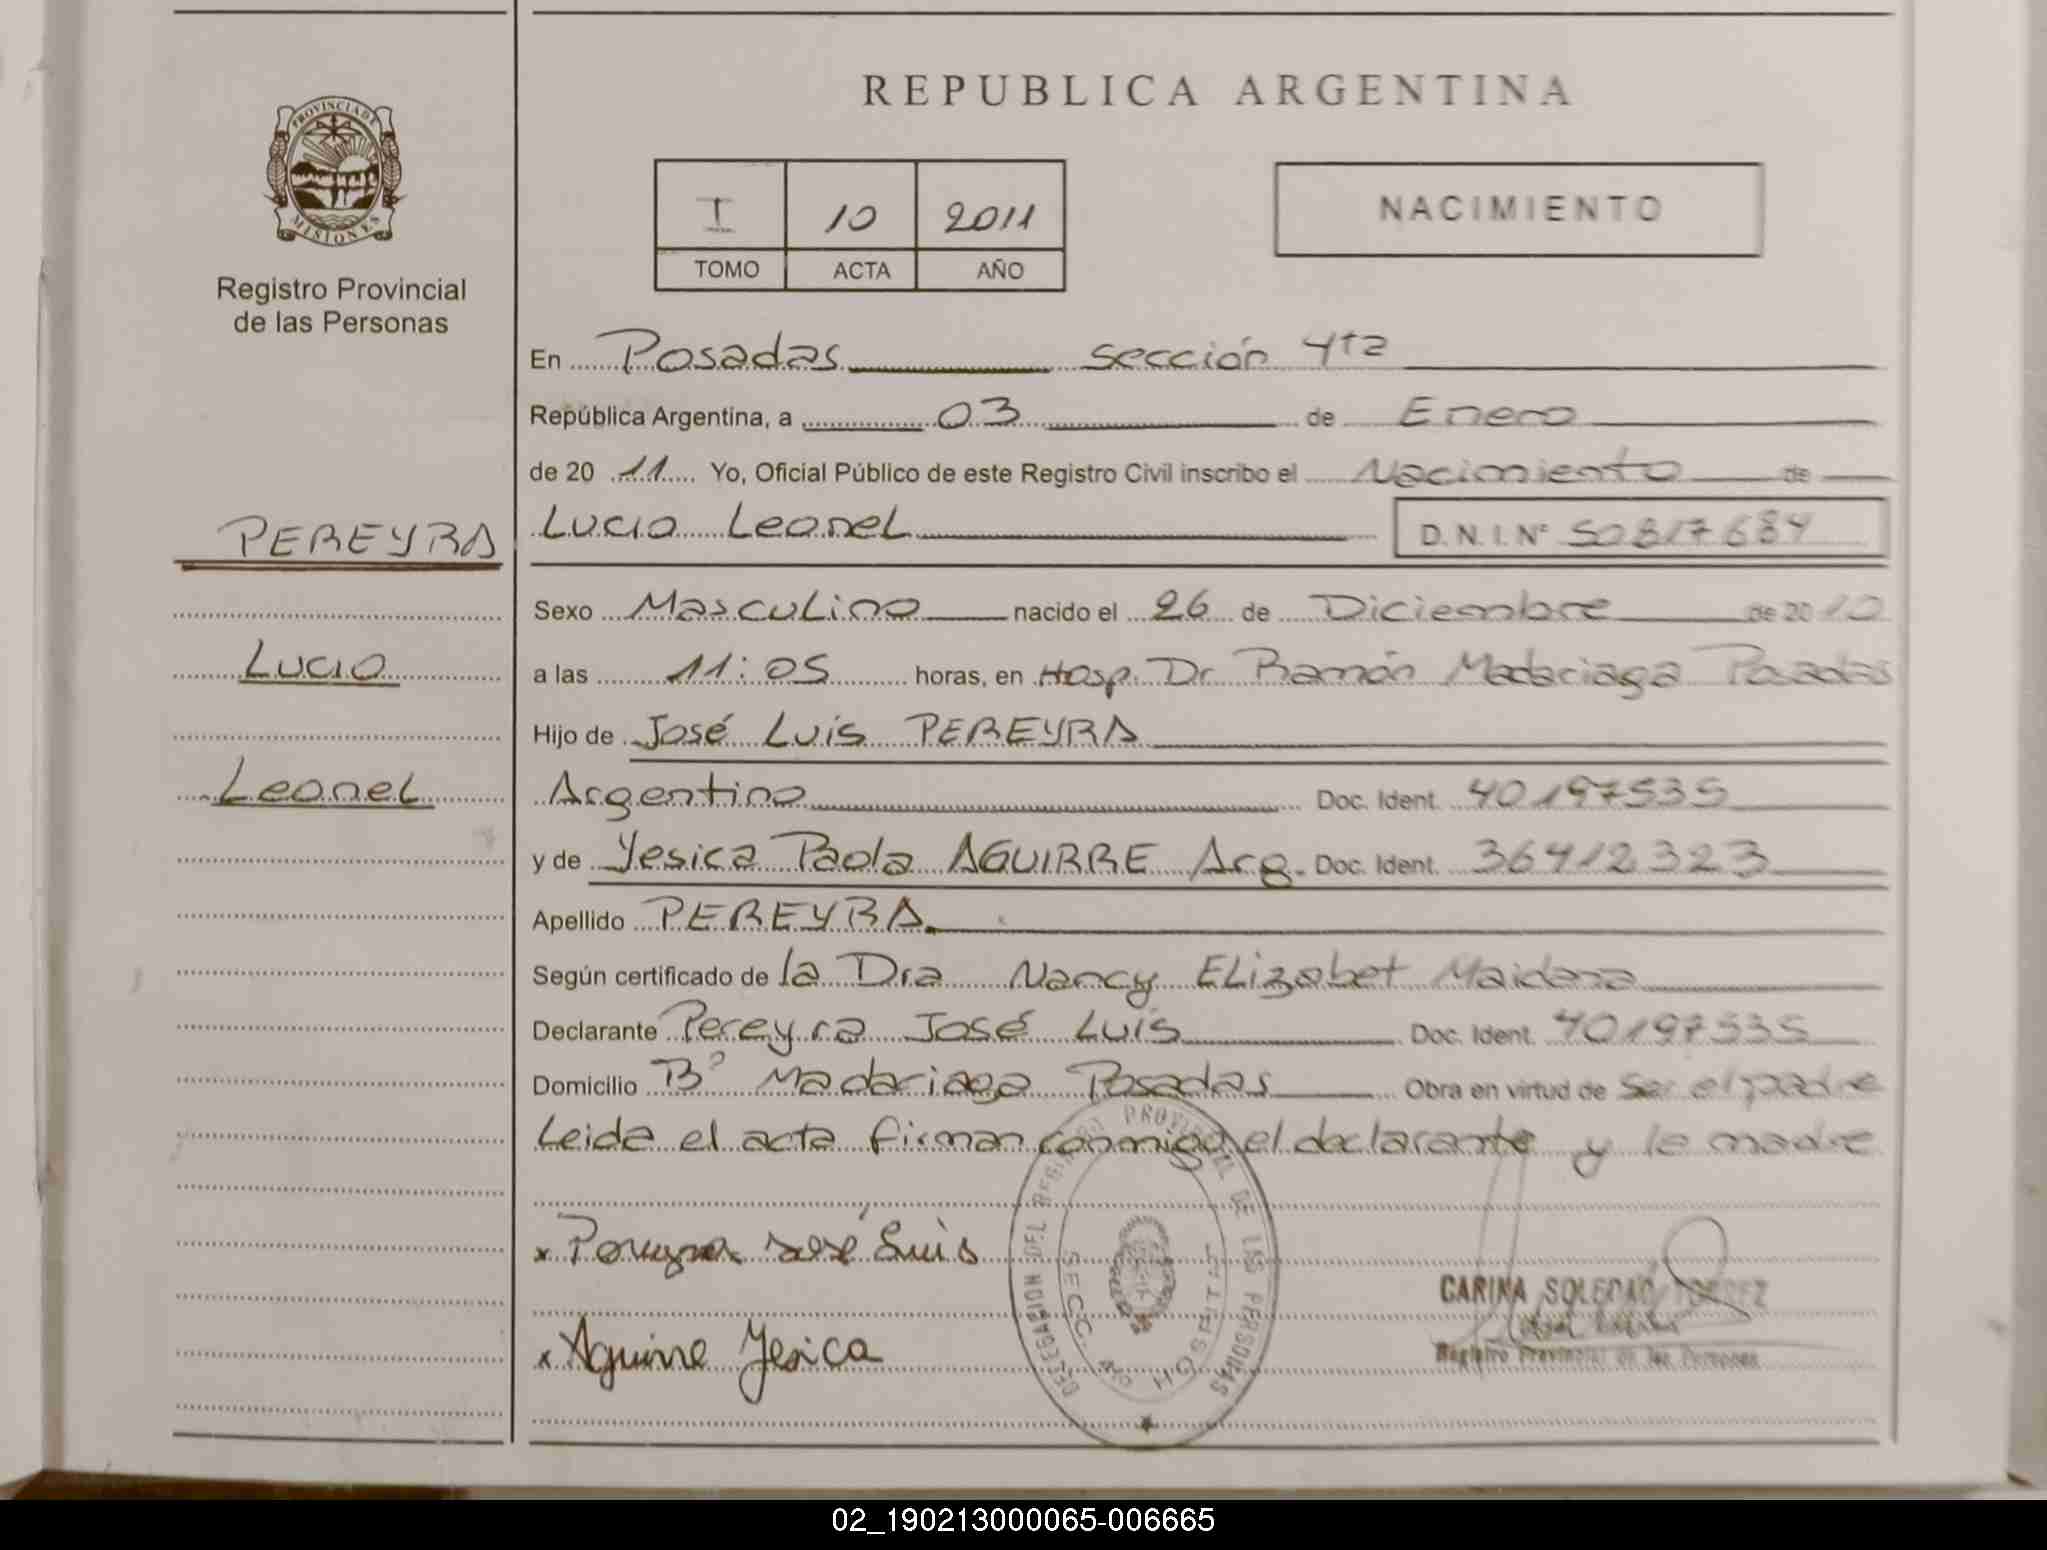 PROVINCIA DE
MISIONES
Registro Provincial
de las Personas
PEREYRA
Lucio
Leonel
REPUBLICA ARGENTINA
I 10 2011
TOMO ACTA AÑO
NACIMIENTO
En Posadas sección 4ta
República Argentina, a 03 de Enero
de 20 11 Yo, Oficial Público de este Registro Civil inscribo el Nacimiento de
Lucio Leonel D.N.I. Nº 50817684
Sexo Masculino nacido el 26 de Diciembre de 2010
a las 11:05 horas, en Hosp. Dr Ramón Madariaga Posadas
Hijo de José Luis PEREYRA
Argentino Doc. Ident. 40197535
y de Yesica Paola AGUIRRE Arg. Doc. Ident. 36412323
Apellido PEREYRA
Según certificado de la Dra Nancy Elizabet Maidana
Declarante Pereyra José Luis Doc. Ident. 40197535
Domicilio Bº Madariaga Posadas Obra en virtud de ser el padre
Leida el acta firman conmigo el declarante y la madre
x Pereyra José Luis
x Aguirre Yesica
DELEGACION DEL REGISTRO PROVINCIAL DE LAS PERSONAS
SECC. HOSPITAL
CARINA SOLEDAD TORREZ
Registro Provincial de las Personas
02_190213000065-006665